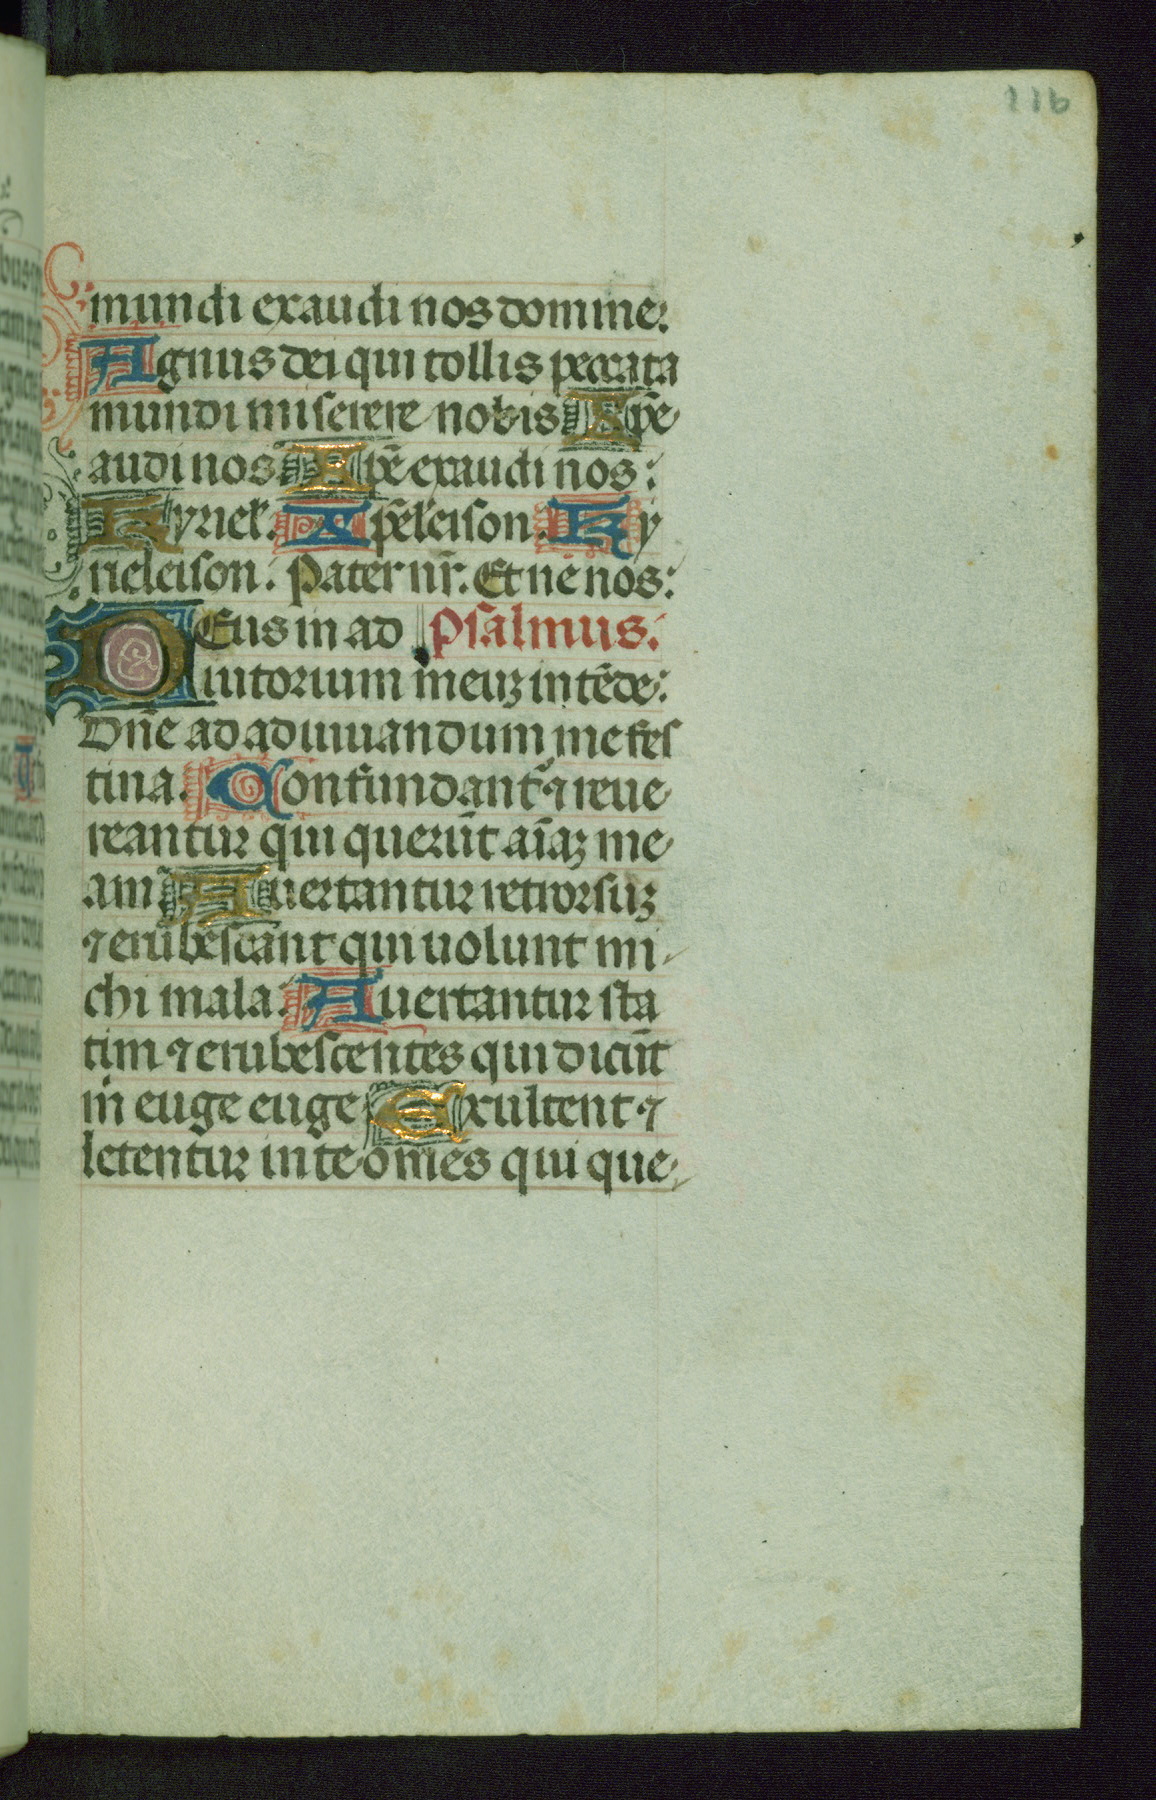 116
mundi exaudi nos domine.
Agnus dei qui tollis peccata
mundi miserere nobis Xpē
audi nos Xpē exaudi nos:
Kyriel. Xpēleison. Ky
rieleison. Pater nr̄. Et ne nos:
DEus in ad Psalmus.
iutorium meuꝫ intēde:
Dn̄e ad adiuuandum me fes
tina. Confundant᷑ ⁊ reue
reantur qui querūt aīaꝫ me
am Auertantur retrorsuꝫ
⁊ erubescant qui uolunt mi
chi mala. Auertantur sta
tim ⁊ erubescentes qui dicūt
m̍ euge euge Exultent ⁊
letentur in te om̄es qui que